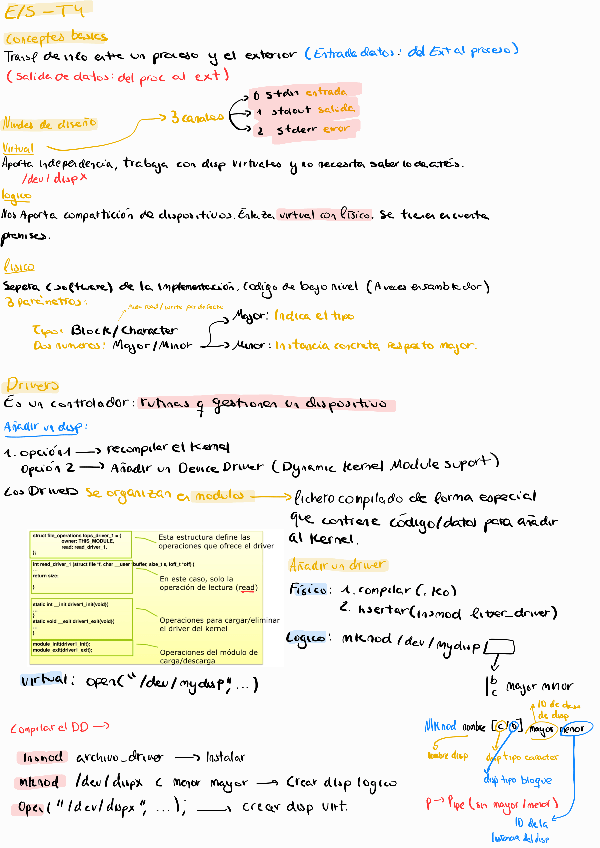 E/S - T4
Conceptes basics
Transf de info entre un proceso y el exterior (Entrada datos: del Ext al proceso)
(Salida de datos: del proc al ext)
0 stdin entrada
3 canales
1 stdout salida
2 stderr error
Niveles de diseño
Virtual
Aporta independencia, trabaja con disp virtuales y no necesita saber lo de atrás.
/dev/dispX
logico
Nos Aporta compartición de dispositivos. Enlaza virtual con físico. Se tienen en cuenta
permisos.
físico
Separa (software) de la implementación. Codigo de bajo nivel (A veces ensamblador)
3 parámetros:
Tipo: Block/Character
Dos numeros: Major/Minor
Major: Indica el tipo
Minor: Instancia concreta respecto major.
Drivers
Es un controlador: rutinas q gestionen un dispositivo
Añadir un disp:
1. opción 1 → recompilar el Kernel
Opción 2 → Añadir un Device Driver (Dynamic Kernel Module Suport)
Los Drivers se organizan en modulos → fichero compilado de forma especial
que contiene código/datos para añadir
al Kernel.
struct file_operations fops_driver_1 = {
owner: THIS_MODULE,
read: read_driver_1,
};
Esta estructura define las
operaciones que ofrece el driver
int read_driver_1 (struct file *f, char __user *buffer, size_t s, loff_t *off) {
return size;
}
En este caso, solo la
operación de lectura (read)
static int __init driver1_init(void){
}
static void __exit driver1_exit(void){
}
Operaciones para cargar/eliminar
el driver del kernel
module_init(driver1_init);
module_exit(driver1_exit);
Operaciones del módulo de
carga/descarga
Añadir un driver
Físico: 1. compilar (.ko)
2. Insertar (insmod fitxer_driver)
Logico: mknod /dev/mydisp
b
c major minor
Virtual: open("/dev/mydisp",...)
Compilar el DD →
Insmod archivo_driver → Instalar
mknod /dev/dispx c menor mayor → Crear disp logico
Open("/dev/dispx", ...); → crear disp virt.
ID de
de disp
MKnod nombre [c/b] mayor menor
nombre disp
disp tipo caracter
disp tipo bloque
p → Pipe (sin mayor/menor)
ID de la
Instancia del disp